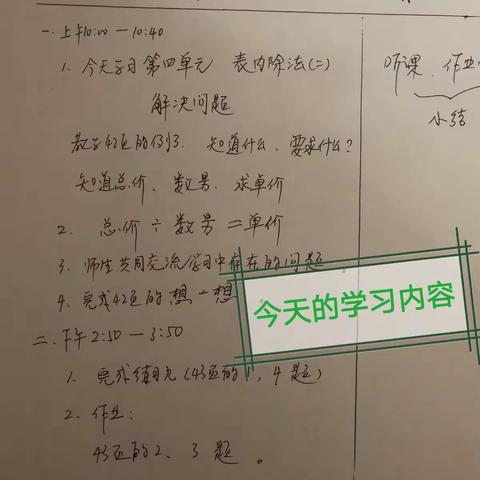 一.上午10:00—10:40
1.今天学习第四单元 表内除法(二)
解决问题
教p42页的例3. 知道什么、要求什么?
知道总价、数量、求单价
2. 总价÷数量=单价
3. 师生共同交流学习中存在的问题
4. 完成42页的想一想
二.下午2:50—3:50
1. 完成练习九(43页的1,4题)
2. 作业:
43页的2、3题。
听课、作业
小结
今天的学习内容